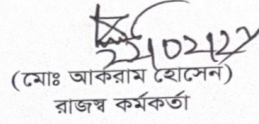 22/02/22
(মোঃ আকরাম হোসেন)
রাজস্ব কর্মকর্তা